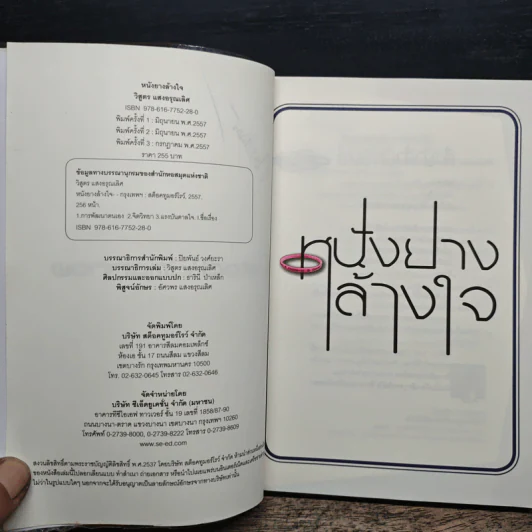 หนังยางล้างใจ
วิสูตร แสงอรุณเลิศ
ISBN 978-616-7752-28-0
พิมพ์ครั้งที่ 1 : มิถุนายน พ.ศ.2557
พิมพ์ครั้งที่ 2 : มิถุนายน พ.ศ.2557
พิมพ์ครั้งที่ 3 : กรกฎาคม พ.ศ.2557
ราคา 255 บาท
ข้อมูลทางบรรณานุกรมของสำนักหอสมุดแห่งชาติ
วิสูตร แสงอรุณเลิศ
หนังยางล้างใจ.-- กรุงเทพฯ : สต็อคทูมอร์โรว์, 2557.
256 หน้า.
1.การพัฒนาตนเอง 2.จิตวิทยา 3.แรงบันดาลใจ. I.ชื่อเรื่อง
ISBN 978-616-7752-28-0
บรรณาธิการสำนักพิมพ์ : ปิยพันธ์ วงศ์ยะรา
บรรณาธิการเล่ม : วิสูตร แสงอรุณเลิศ
ศิลปกรรมและออกแบบปก : ธารินี ป่าเหล็ก
พิสูจน์อักษร : อัศวพร แสงอรุณเลิศ
จัดพิมพ์โดย
บริษัท สต็อคทูมอร์โรว์ จำกัด
เลขที่ 191 อาคารสีลมคอมเพล็กซ์
ห้องเอ ชั้น 17 ถนนสีลม แขวงสีลม
เขตบางรัก กรุงเทพมหานคร 10500
โทร. 02-632-0645 โทรสาร 02-632-0646
จัดจำหน่ายโดย
บริษัท ซีเอ็ดยูเคชั่น จำกัด (มหาชน)
อาคารทีซีไอเอฟ ทาวเวอร์ ชั้น 19 เลขที่ 1858/87-90
ถนนบางนา-ตราด แขวงบางนา เขตบางนา กรุงเทพฯ 10260
โทรศัพท์ 0-2739-8000, 0-2739-8222 โทรสาร 0-2739-8609
www.se-ed.com
สงวนลิขสิทธิ์ตามพระราชบัญญัติลิขสิทธิ์ พ.ศ.2537 โดยบริษัท สต็อคทูมอร์โรว์ จำกัด ห้ามนำส่วนหนึ่งส่วนใด
ของหนังสือเล่มนี้ไปลอกเลียนแบบ ทำสำเนา ถ่ายเอกสาร หรือนำไปเผยแพร่บนอินเตอร์เน็ตและเครือข่าย
ไม่ว่าในรูปแบบใดๆ นอกจากจะได้รับอนุญาตเป็นลายลักษณ์อักษรจากทางบริษัทเท่านั้น
หนังยาง
ล้างใจ